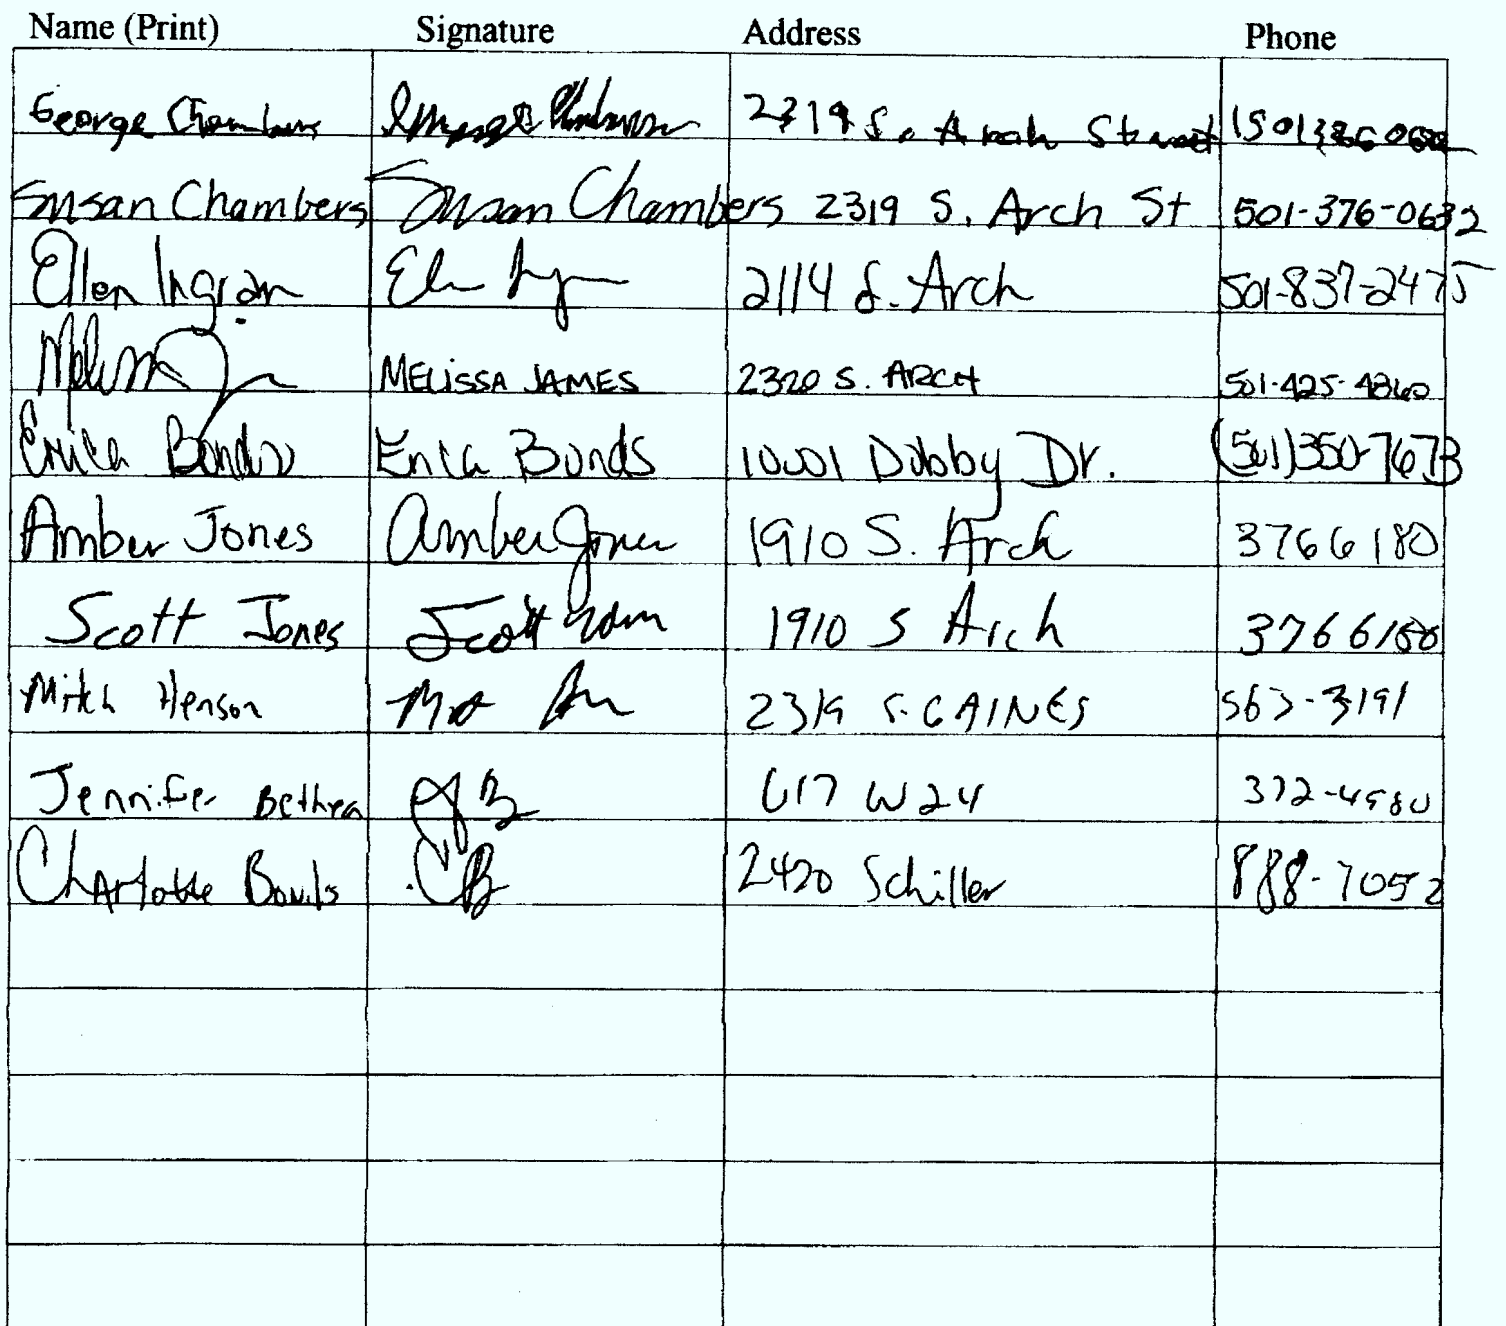 Name (Print) Signature Address Phone
George Chambers 2319 S. Arch Street
Susan Chambers Susan Chambers 2319 S. Arch St 501-376-0632
Ellen Ingram 2114 S. Arch 501-837-2475
Melissa MELISSA JAMES 2320 S. ARCH 501-425-4860
Erica Bonds Erica Bonds 10001 Dobby Dr. (501)350-7673
Amber Jones Amber Jones 1910 S. Arch 3766180
Scott Jones Scott 1910 S Arch 3766180
Mitch Henson 2319 S. GAINES 563-3191
Jennifer Bethea JB 617 W 24 372-4980
Charlotte Bowls CB 2420 Schiller 888-7052